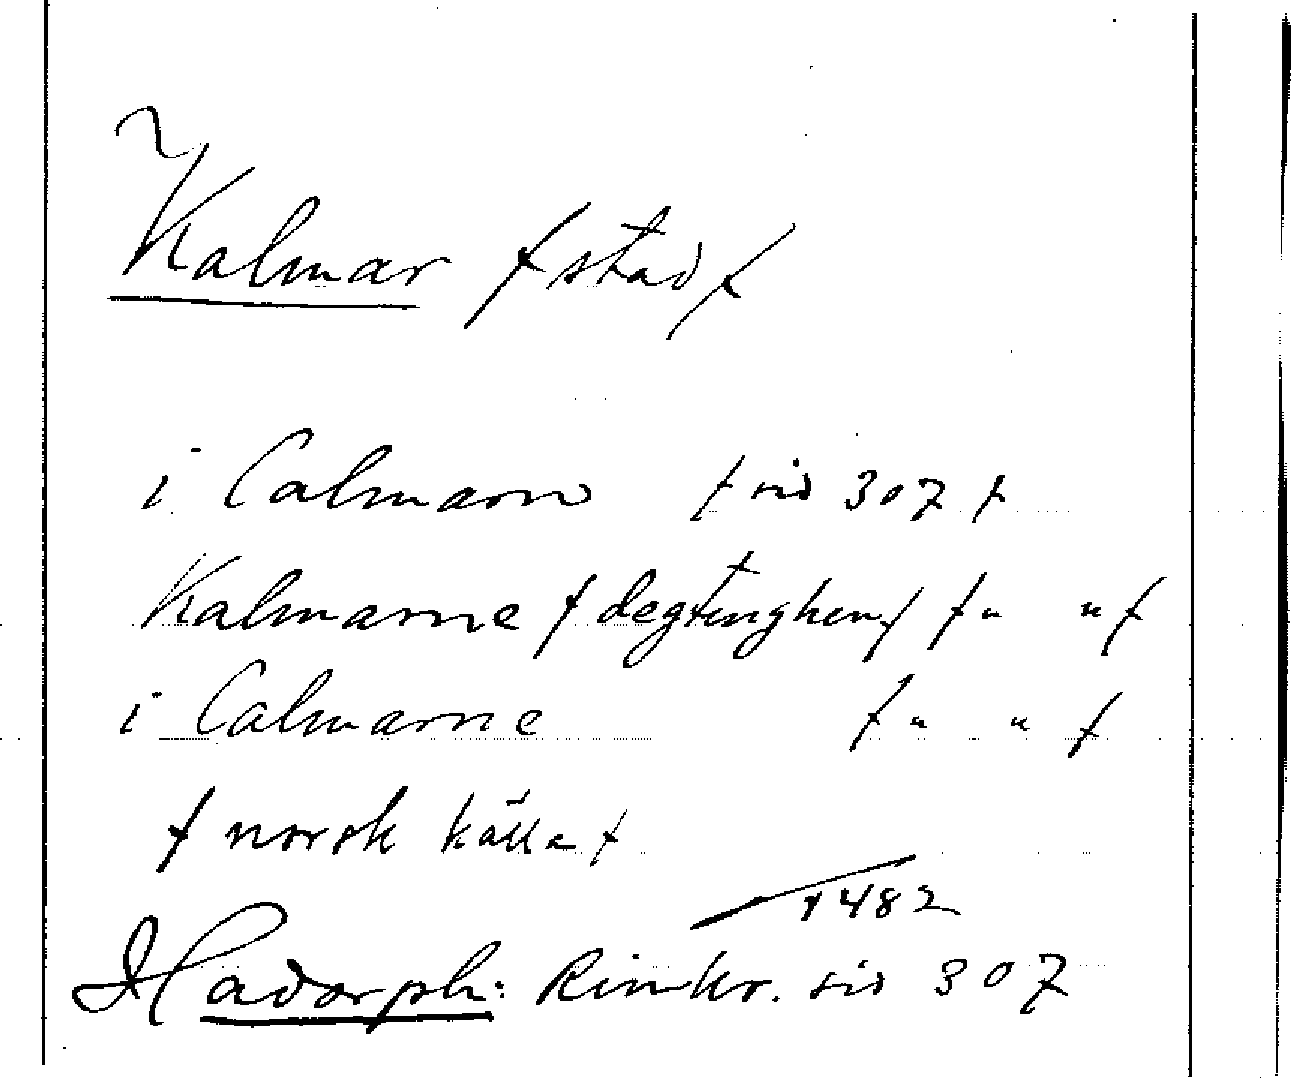 Kalmar /stad/
i Calmarn /sid 307/
Kalmarne /degtinghen/ /" "/
i Calmarne /" "/
/norsk källa/
1482
Hadorph: Rimkr. sid 307